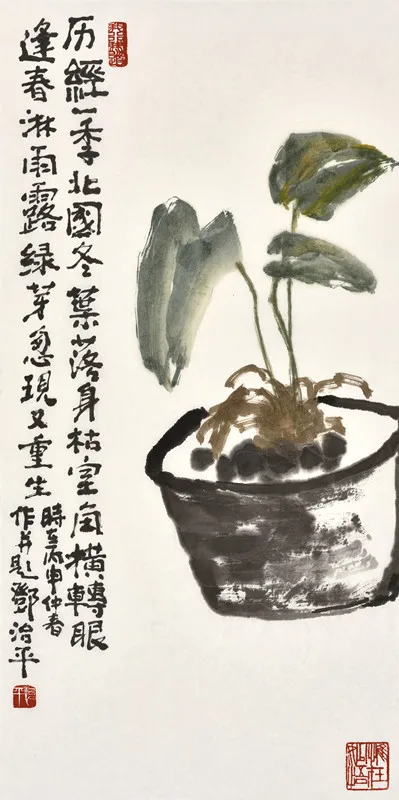 历經一季北國冬葉落身枯室角橫轉眼
逢春淋雨露绿芽忽現又重生
時在丙申仲春
作并題鄧治平